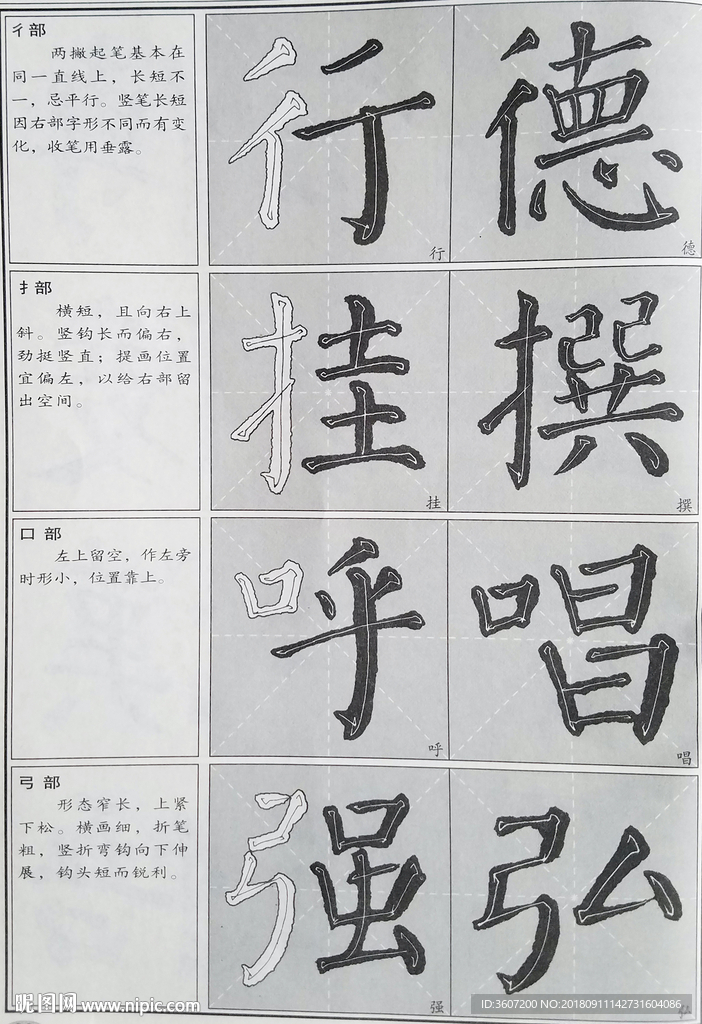 彳部
两撇起笔基本在
同一直线上，长短不
一，忌平行。竖笔长短
因右部字形不同而有变
化，收笔用垂露。
行 德
行 德
扌部
横短，且向右上
斜。竖钩长而偏右，
劲挺竖直；提画位置
宜偏左，以给右部留
出空间。
挂 撰
挂 撰
口部
左上留空，作左旁
时形小，位置靠上。
呼 唱
呼 唱
弓部
形态窄长，上紧
下松。横画细，折笔
粗，竖折弯钩向下伸
展，钩头短而锐利。
强 弘
强 弘
昵图网 www.nipic.com
ID:3607200 NO:20180911142731604086